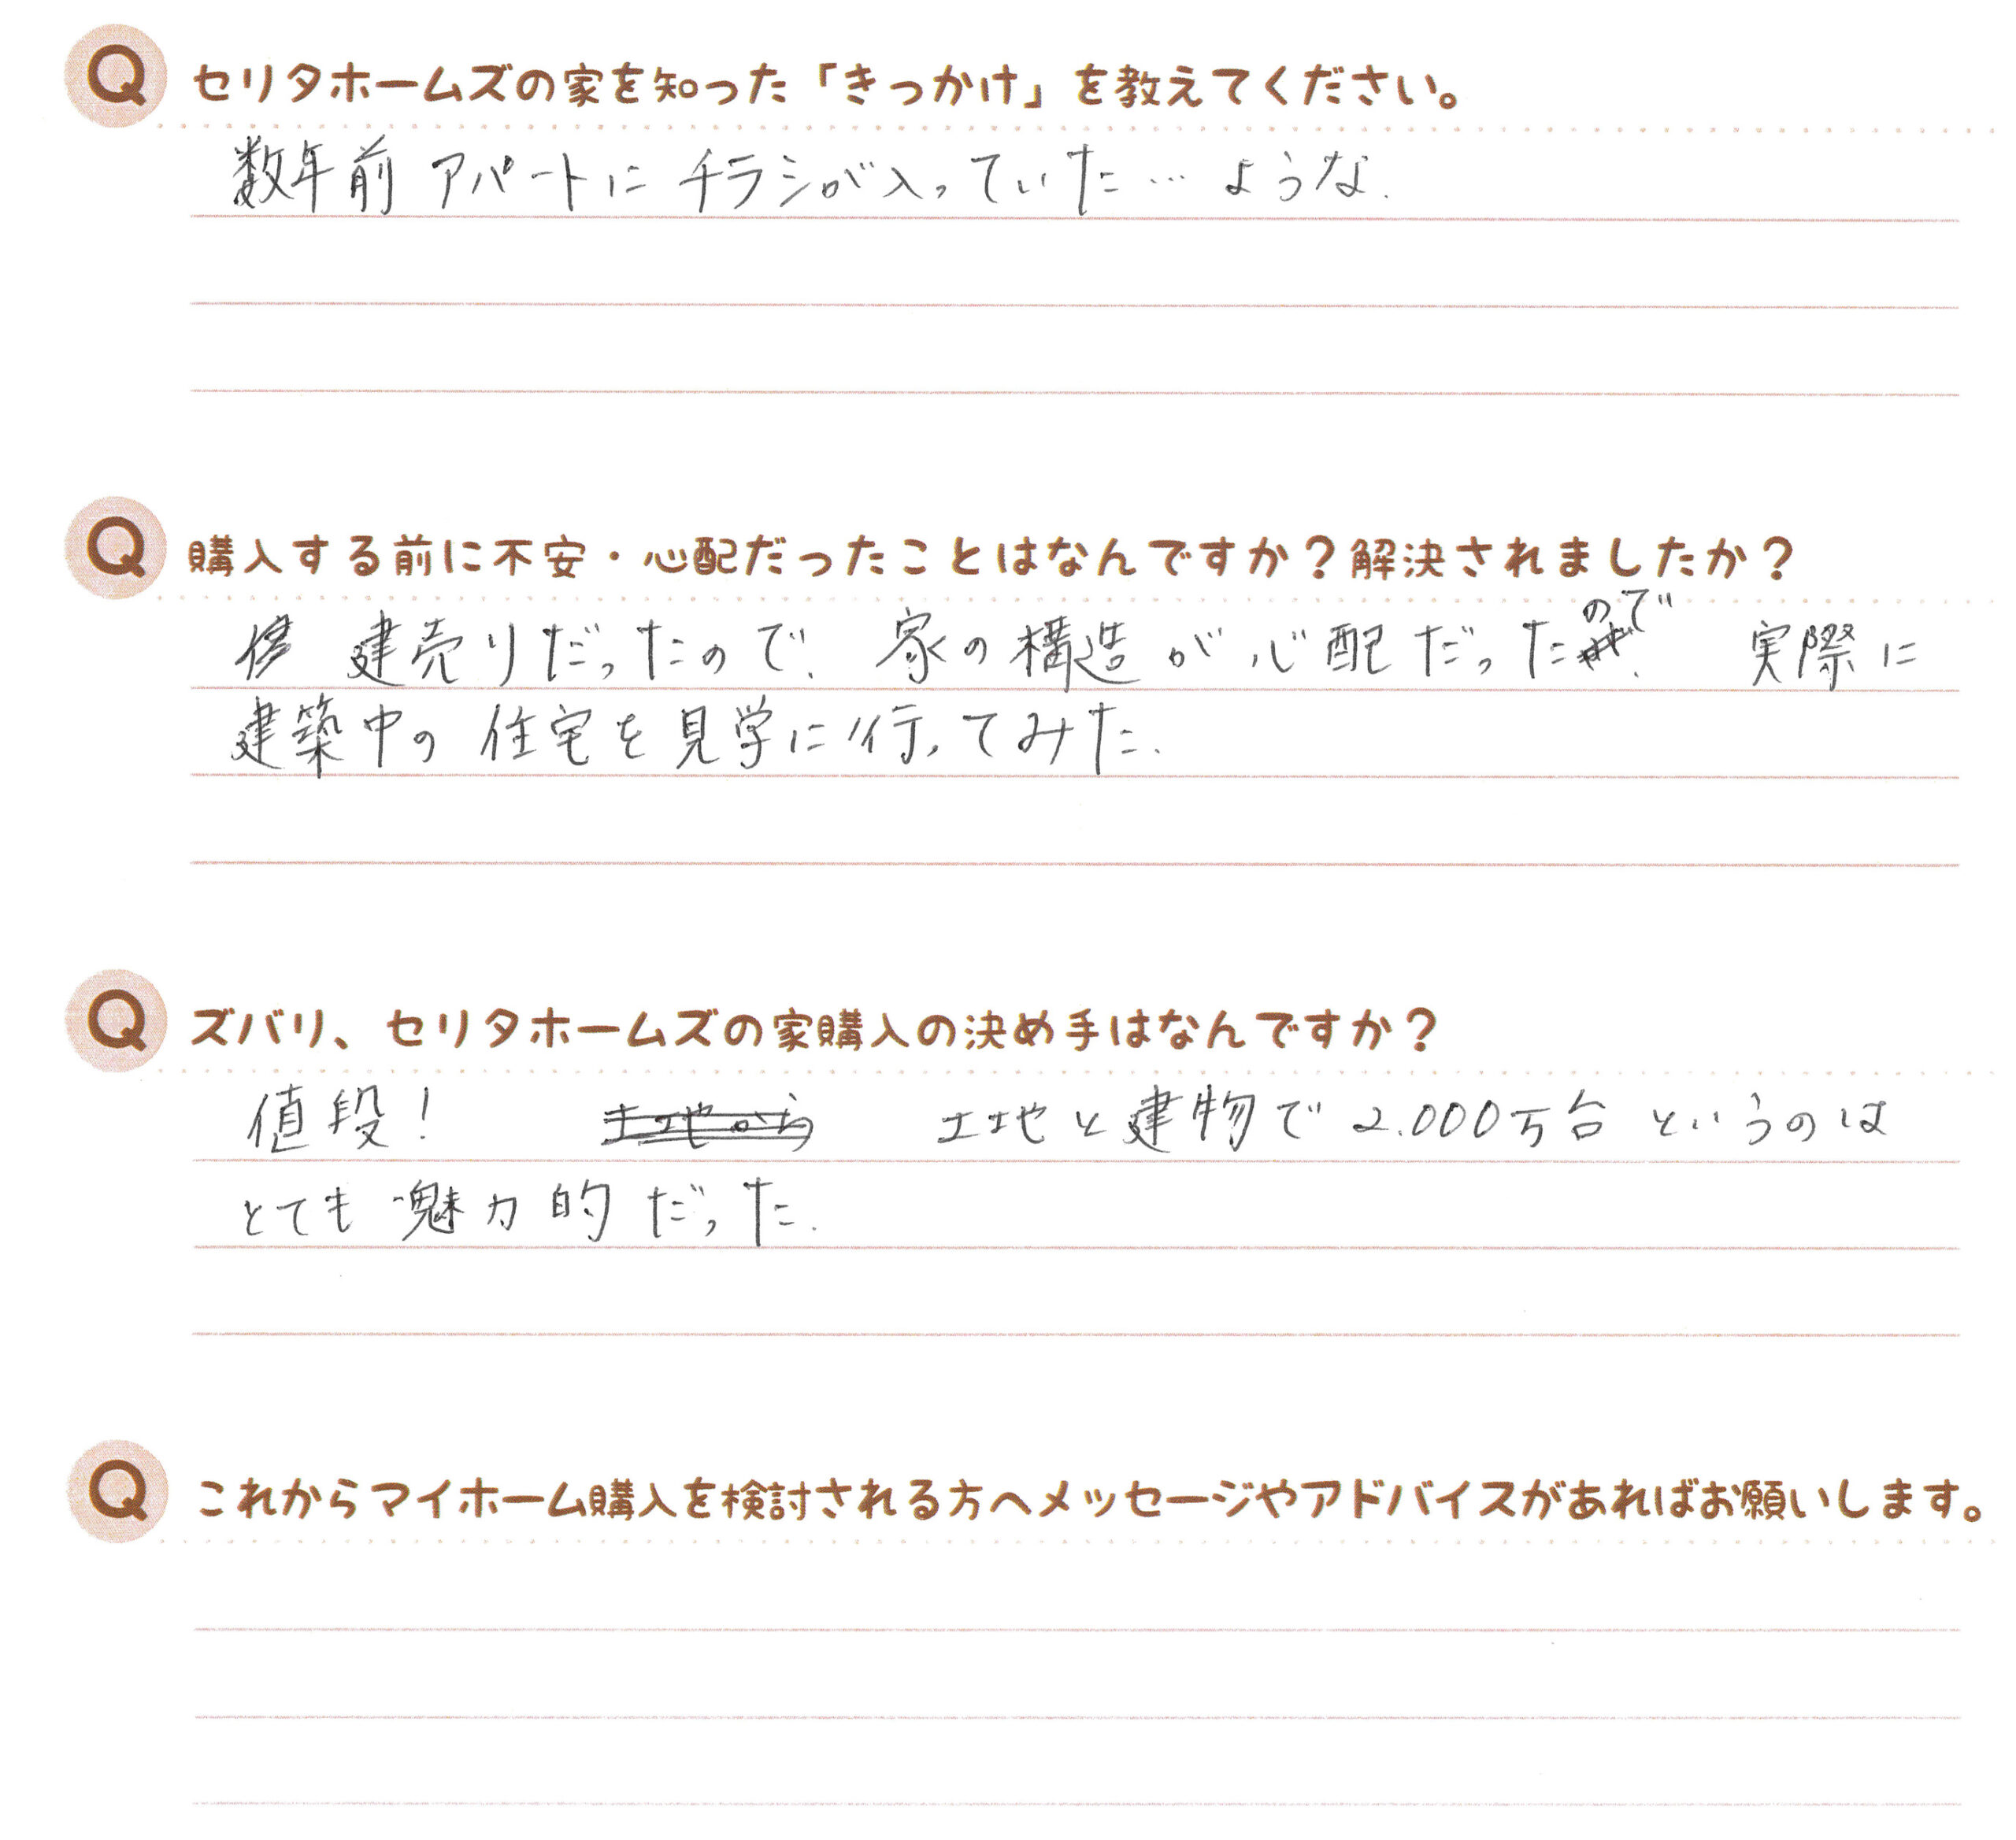 Q セリタホームズの家を知った「きっかけ」を教えてください。
数年前 アパートに チラシが入っていた… ような.
Q 購入する前に不安・心配だったことはなんですか？解決されましたか？
建売りだったので、家の構造が心配だったので 実際に
建築中の 住宅を見学に行ってみた.
Q ズバリ、セリタホームズの家購入の決め手はなんですか？
値段！ 土地から 土地と建物で 2.000万台 というのは
とても 魅力的だった.
Q これからマイホーム購入を検討される方へメッセージやアドバイスがあればお願いします。